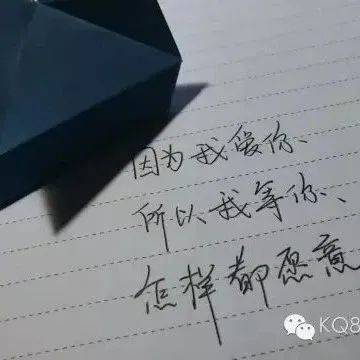 因为我爱你、
所以我等你、
怎样都愿意
KQ8